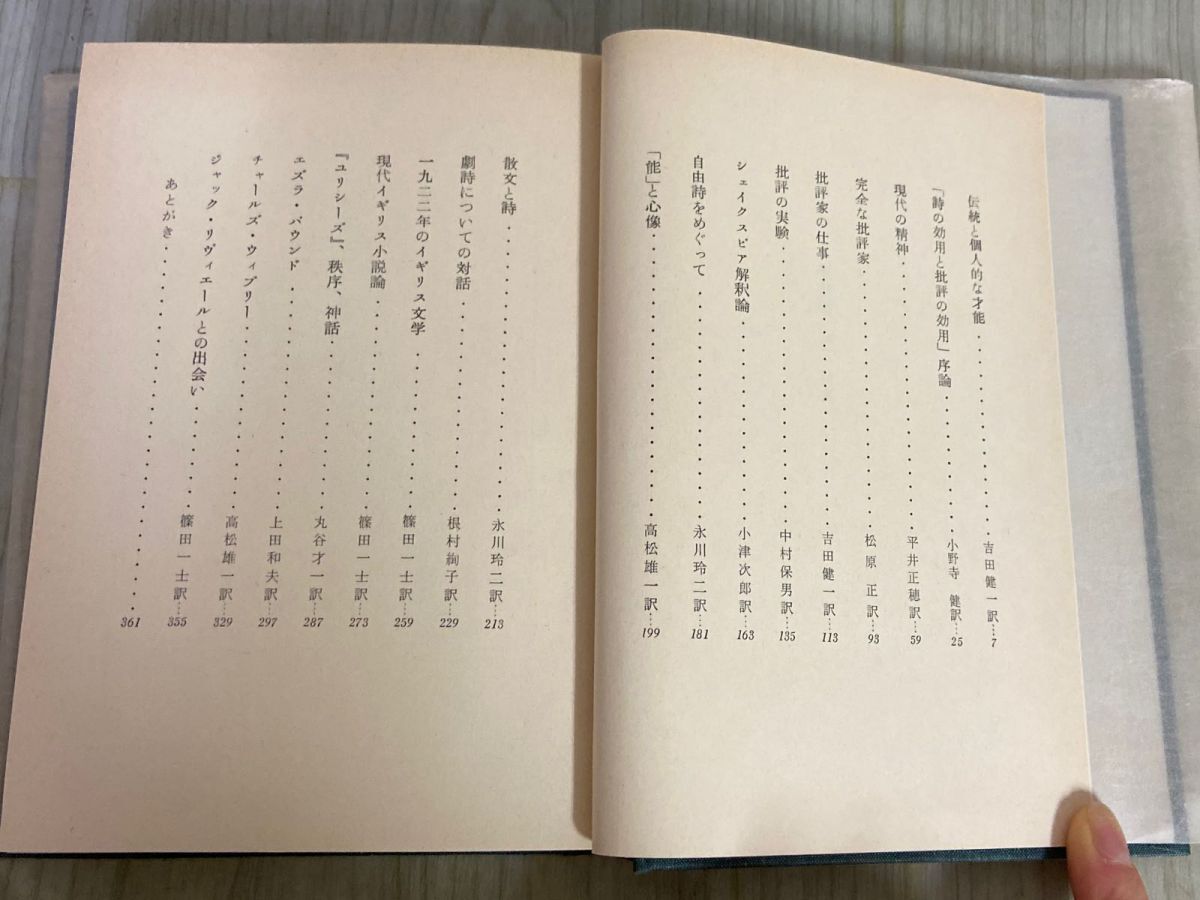 伝統と個人的な才能・・・・・・・・・・・・・吉田健一訳…7
「詩の効用と批評の効用」序論・・・・・・・・・小野寺 健訳…25
現代の精神・・・・・・・・・・・・・・・・平井正穂訳…59
完全な批評家・・・・・・・・・・・・・・・松原 正訳…93
批評家の仕事・・・・・・・・・・・・・・・吉田健一訳…113
批評の実験・・・・・・・・・・・・・・・・中村保男訳…135
シェイクスピア解釈論・・・・・・・・・・・・小津次郎訳…163
自由詩をめぐって・・・・・・・・・・・・・永川玲二訳…181
「能」と心像・・・・・・・・・・・・・・・高松雄一訳…199
散文と詩・・・・・・・・・・・・・・・・・永川玲二訳…213
劇詩についての対話・・・・・・・・・・・・・根村絢子訳…229
一九二二年のイギリス文学・・・・・・・・・・篠田一士訳…259
現代イギリス小説論・・・・・・・・・・・・・篠田一士訳…273
『ユリシーズ』、秩序、神話・・・・・・・・・・丸谷才一訳…287
エズラ・パウンド・・・・・・・・・・・・・上田和夫訳…297
チャールズ・ウィブリー・・・・・・・・・・・高松雄一訳…329
ジャック・リヴィエールとの出会い・・・・・・・篠田一士訳…355
あとがき・・・・・・・・・・・・・・・・・・・・・361